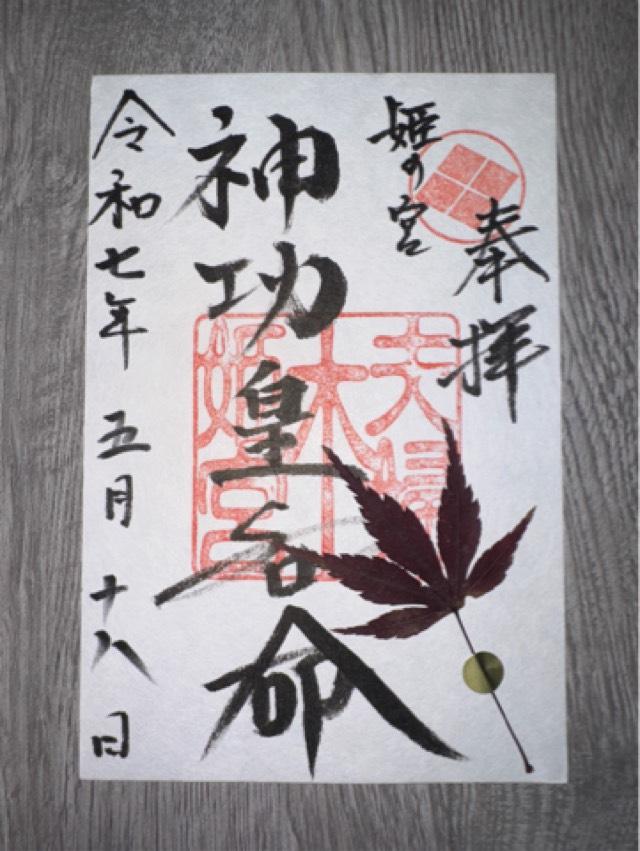 奉拝
姫の宮
夫婦
木
姫宮
神功皇后命
令和七年 五月 十八日